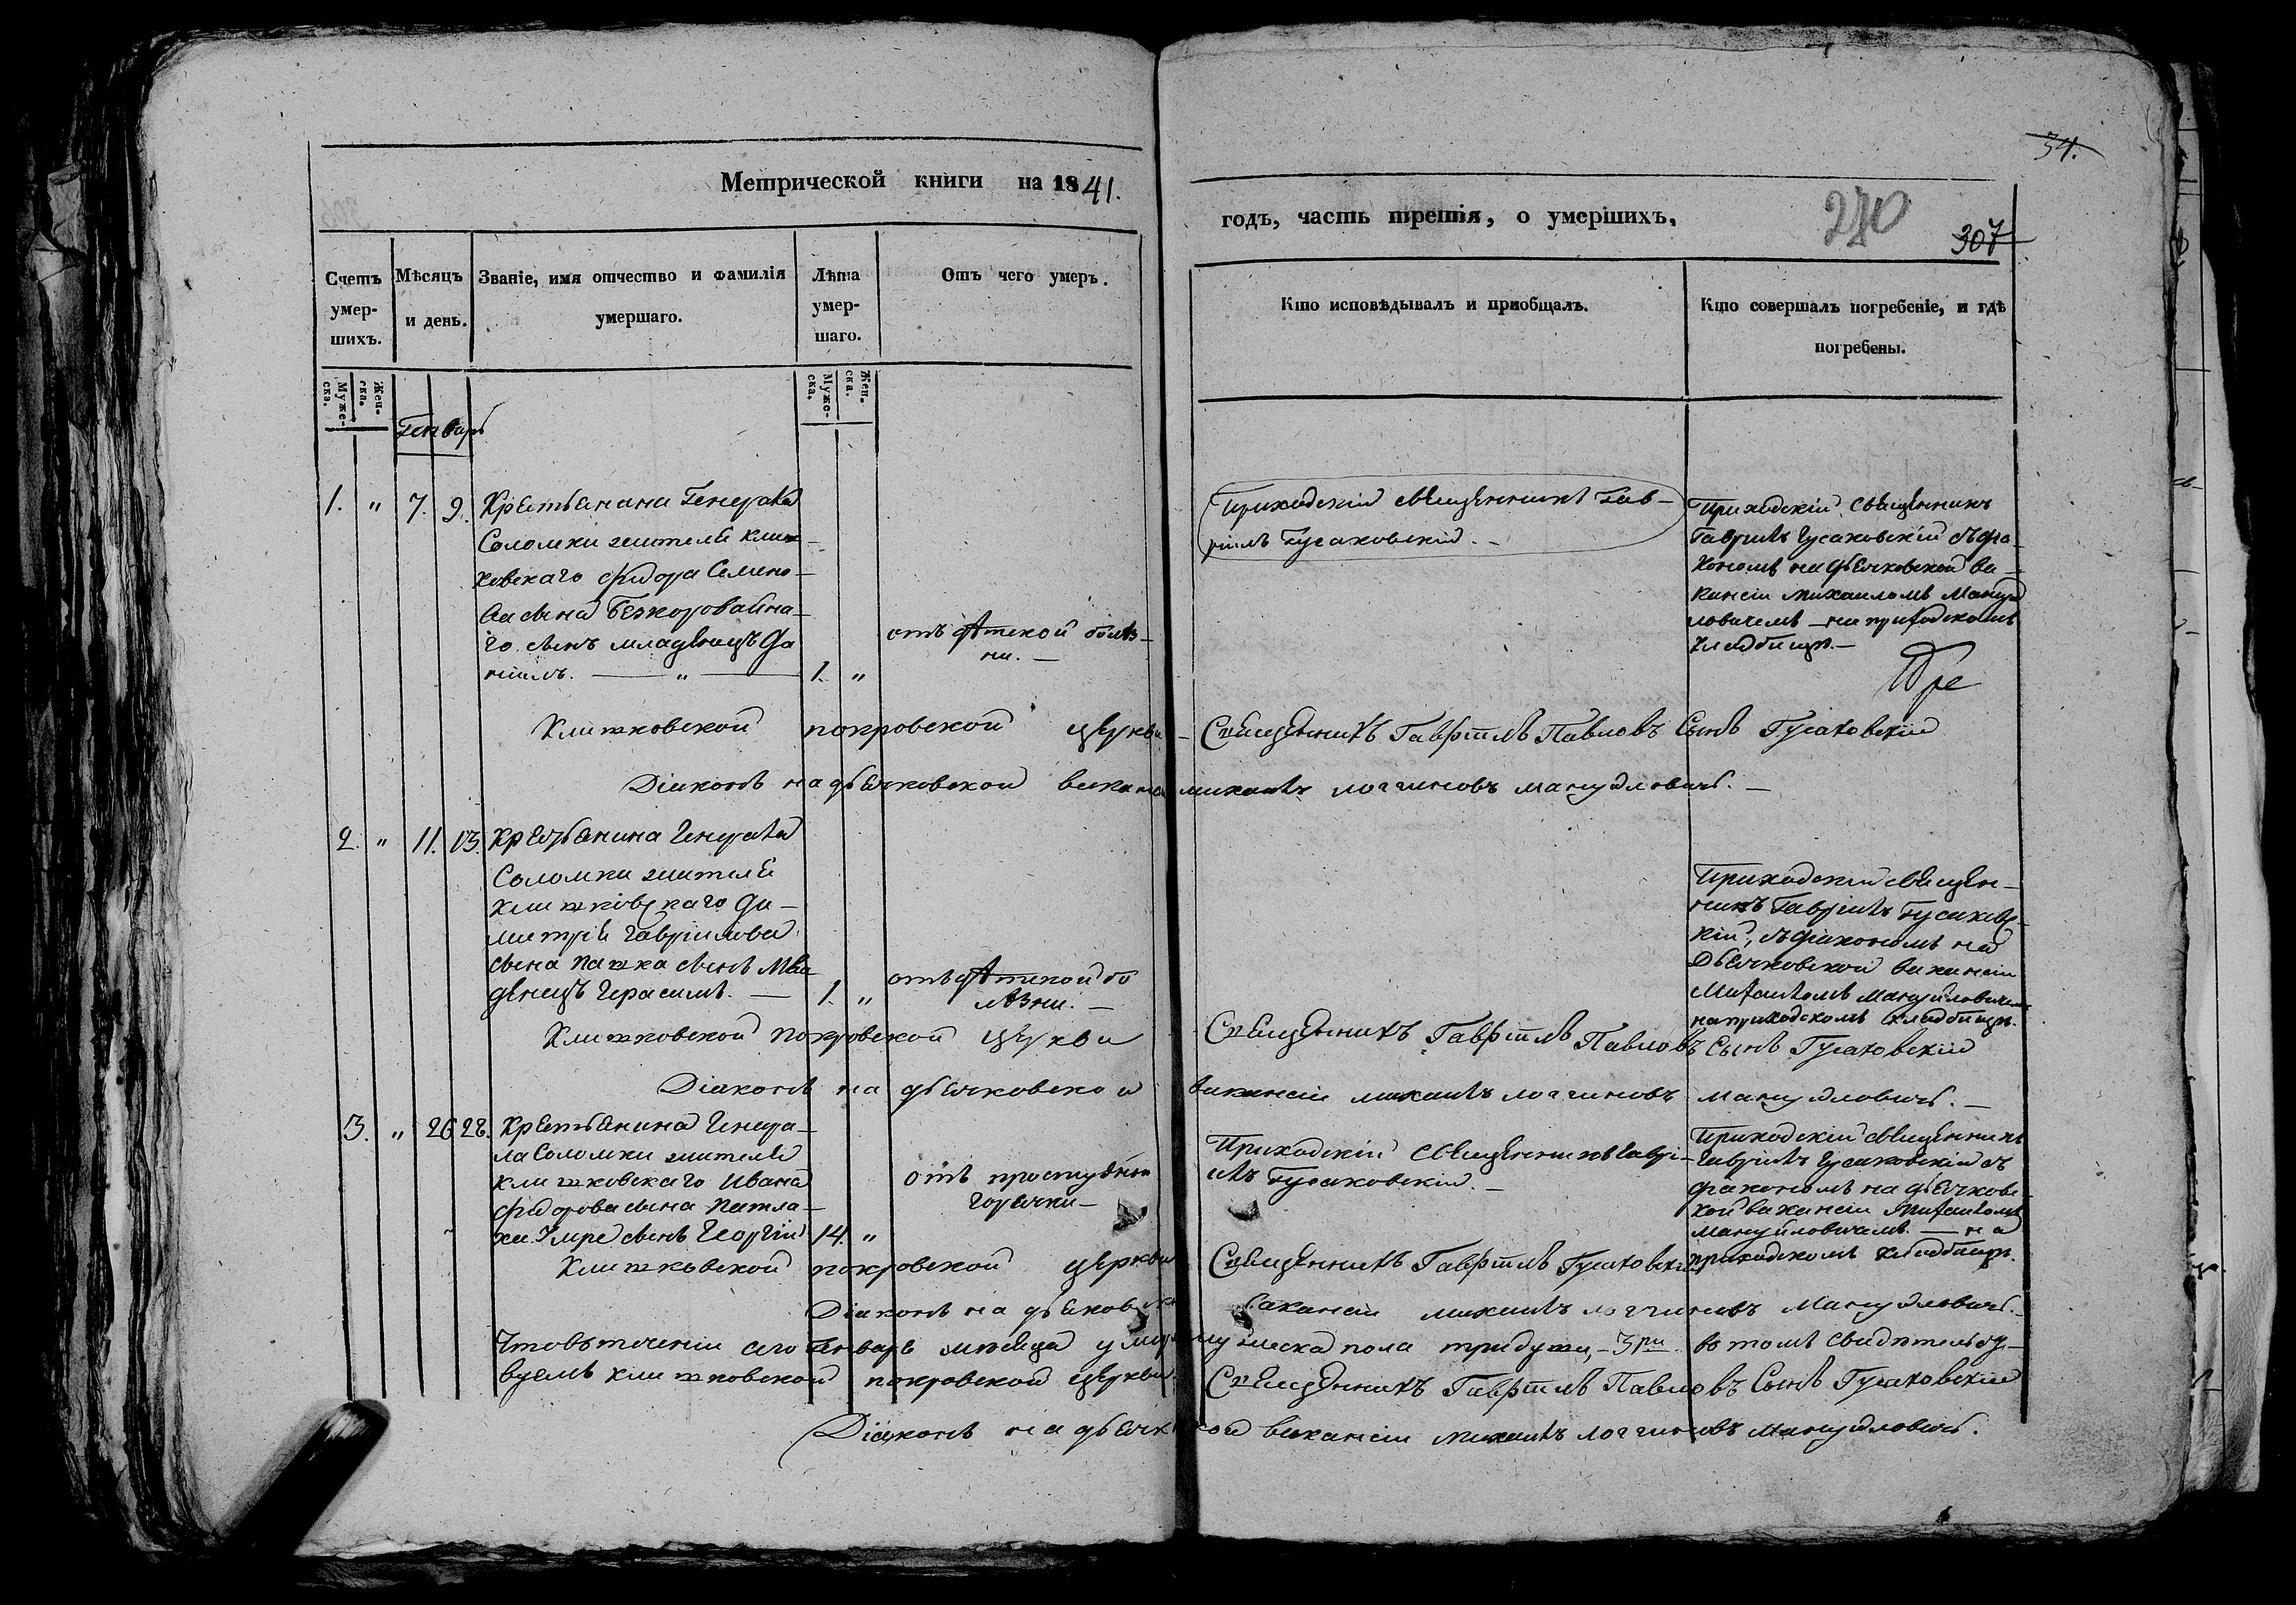 34.
Метрической книги на 1841.
годъ, часть третія, о умершихъ.
270
307
Счетъ умер-шихъ.
Мѣсяцъ и день.
Званіе, имя отчество и фамилія умершаго.
Лѣта умер-шаго.
Отъ чего умеръ.
Кто исповѣдывалъ и пріобщалъ.
Кто совершалъ погребеніе, и гдѣ погребены.
Муже-ска.
Жен-ска.
Муже-ска.
Жен-ска.
Генварь
1. " 7. 9.
Крестьянина Генерала
Соломки жителя Клиш-
ковскаго Фидора Семено-
ва сына Безкоровайна-
го сынъ младенецъ Да
ніилъ. — " —
1. "
отъ дѣтской болѣз-
ни. —
Приходскій священникъ Гав-
ріилъ Гусаковскій. —
Приходскій священникъ
Гавріилъ Гусаковскій съ діа
кономъ на дьячковской ва-
кансіи Михаиломъ Мануй
ловичемъ — на приходскомъ
кладбищѣ. —
Клишковской покровской церкви — Священникъ Гавріилъ Павловъ Сынъ Гусаковскій
Діаконъ на дьячковской вакансіи михаилъ логгиновъ мануйловичъ. —
2. " 11. 13.
Крестьянина Генерала
Соломки жителя
Клишковскаго Ди-
митрія Гавріилова
сына Пашка сынъ Мла
денецъ Герасимъ. —
1. "
отъ дѣтской бо
лѣзни. —
Приходскій священ-
никъ Гавріилъ Гусаковс-
кій, съ діакономъ на
Дьячковской вакансіи
Михаиломъ Мануйловичемъ
на приходскомъ кладбищѣ.
Клишковской покровской церкви Священникъ Гавріилъ Павловъ Сынъ Гусаковскій
Діаконъ на дьячковской вакансіи михаилъ логгиновъ мануйловичъ. —
3. " 26 28.
Крестьянина Генера-
ла Соломки жителя
Клишковскаго Ивана
Фидорова сына
сынъ Георгій
14. "
отъ простудной
горячки —
Приходскій священникъ Гаврі-
илъ Гусаковскій. —
Приходскій священникъ
Гавріилъ Гусаковскій съ
діакономъ на дьячковс-
кой вакансіи Михаиломъ
Мануйловичемъ. — на
приходскомъ кладбищѣ.
Клишковской покровской церкви Священникъ Гавріилъ Гусаковскій
Діаконъ на вакансіи михаилъ логгиновъ Мануйловичъ. —
Что въ теченіи сего Генваря мѣсяца мужеска пола три души, — 3ри въ томъ свидѣтельст-
вуемъ клишковской покровской церкви Священникъ Гавріилъ Павловъ Сынъ Гусаковскій
Діаконъ на дьячковской вакансіи михаилъ логгиновъ мануйловичъ.